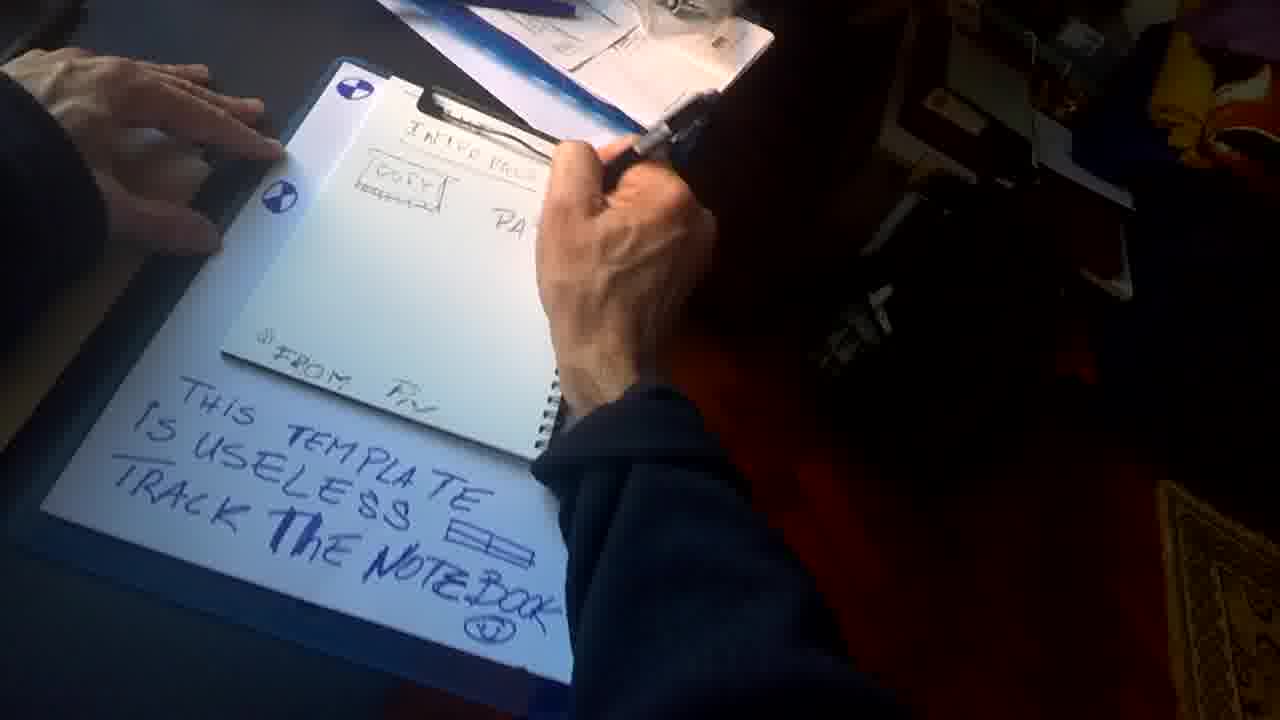 COPY
PA
① FROM
THIS TEMPLATE
IS USELESS
TRACK THE NOTEBOOK